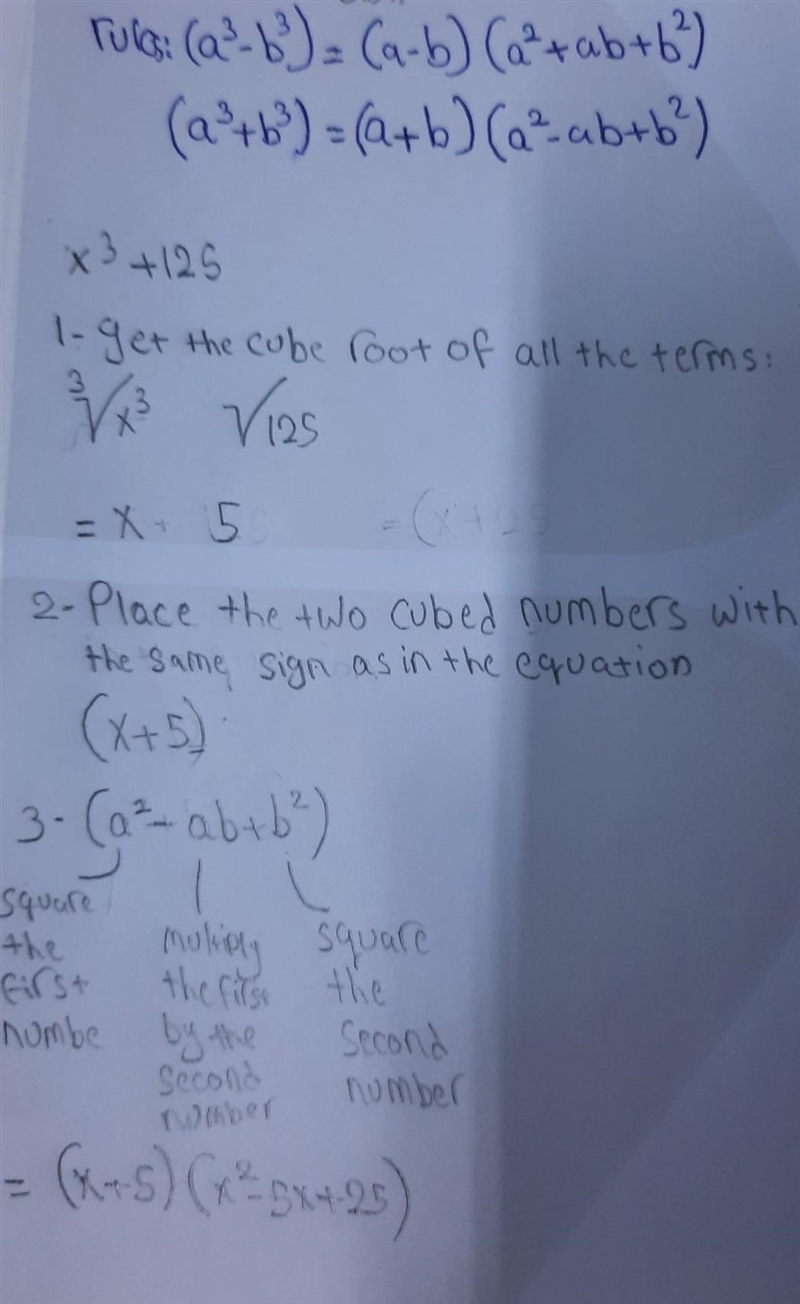 rules: (a³-b³) = (a-b) (a²+ab+b²)
(a³+b³) = (a+b) (a²-ab+b²)
x³+125
1- get the cube root of all the terms:
³√x³ √125
= x 5 = (x+25
2- Place the two cubed numbers with
the same sign as in the equation
(x+5)
3- (a²-ab+b²)
square
the
first
numbe
multiply
the first
by the
second
number
square
the
second
number
= (x+5) (x²-5x+25)